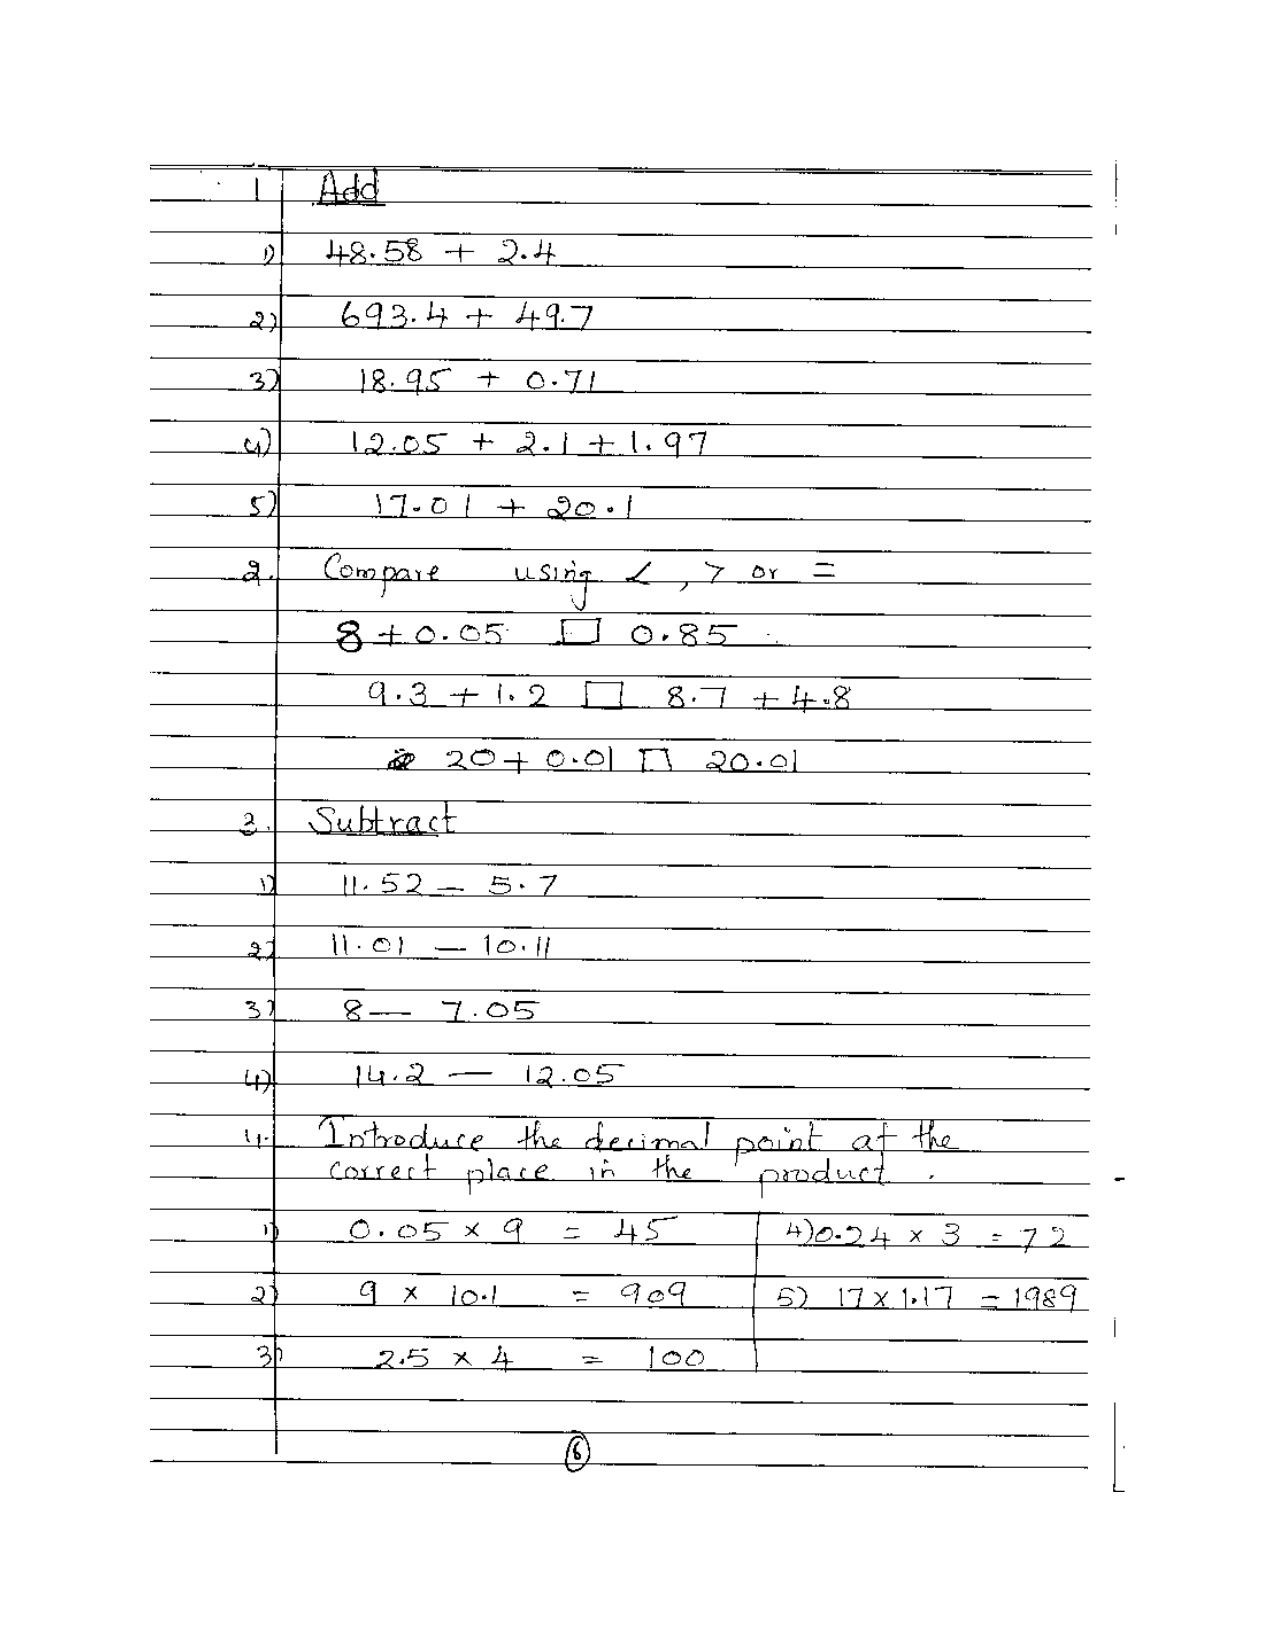 1 Add
1) 48.58 + 2.4
2) 693.4 + 49.7
3) 18.95 + 0.71
4) 12.05 + 2.1 + 1.97
5) 17.01 + 20.1
2. Compare using <, > or =
8 + 0.05 □ 0.85
9.3 + 1.2 □ 8.7 + 4.8
20 + 0.01 □ 20.01
3. Subtract
1) 11.52 — 5.7
2) 11.01 — 10.11
3) 8 — 7.05
4) 14.2 — 12.05
4. Introduce the decimal point at the
correct place in the product.
1) 0.05 × 9 = 45
2) 9 × 10.1 = 909
3) 2.5 × 4 = 100
4) 0.24 × 3 = 72
5) 17 × 1.17 = 1989
6